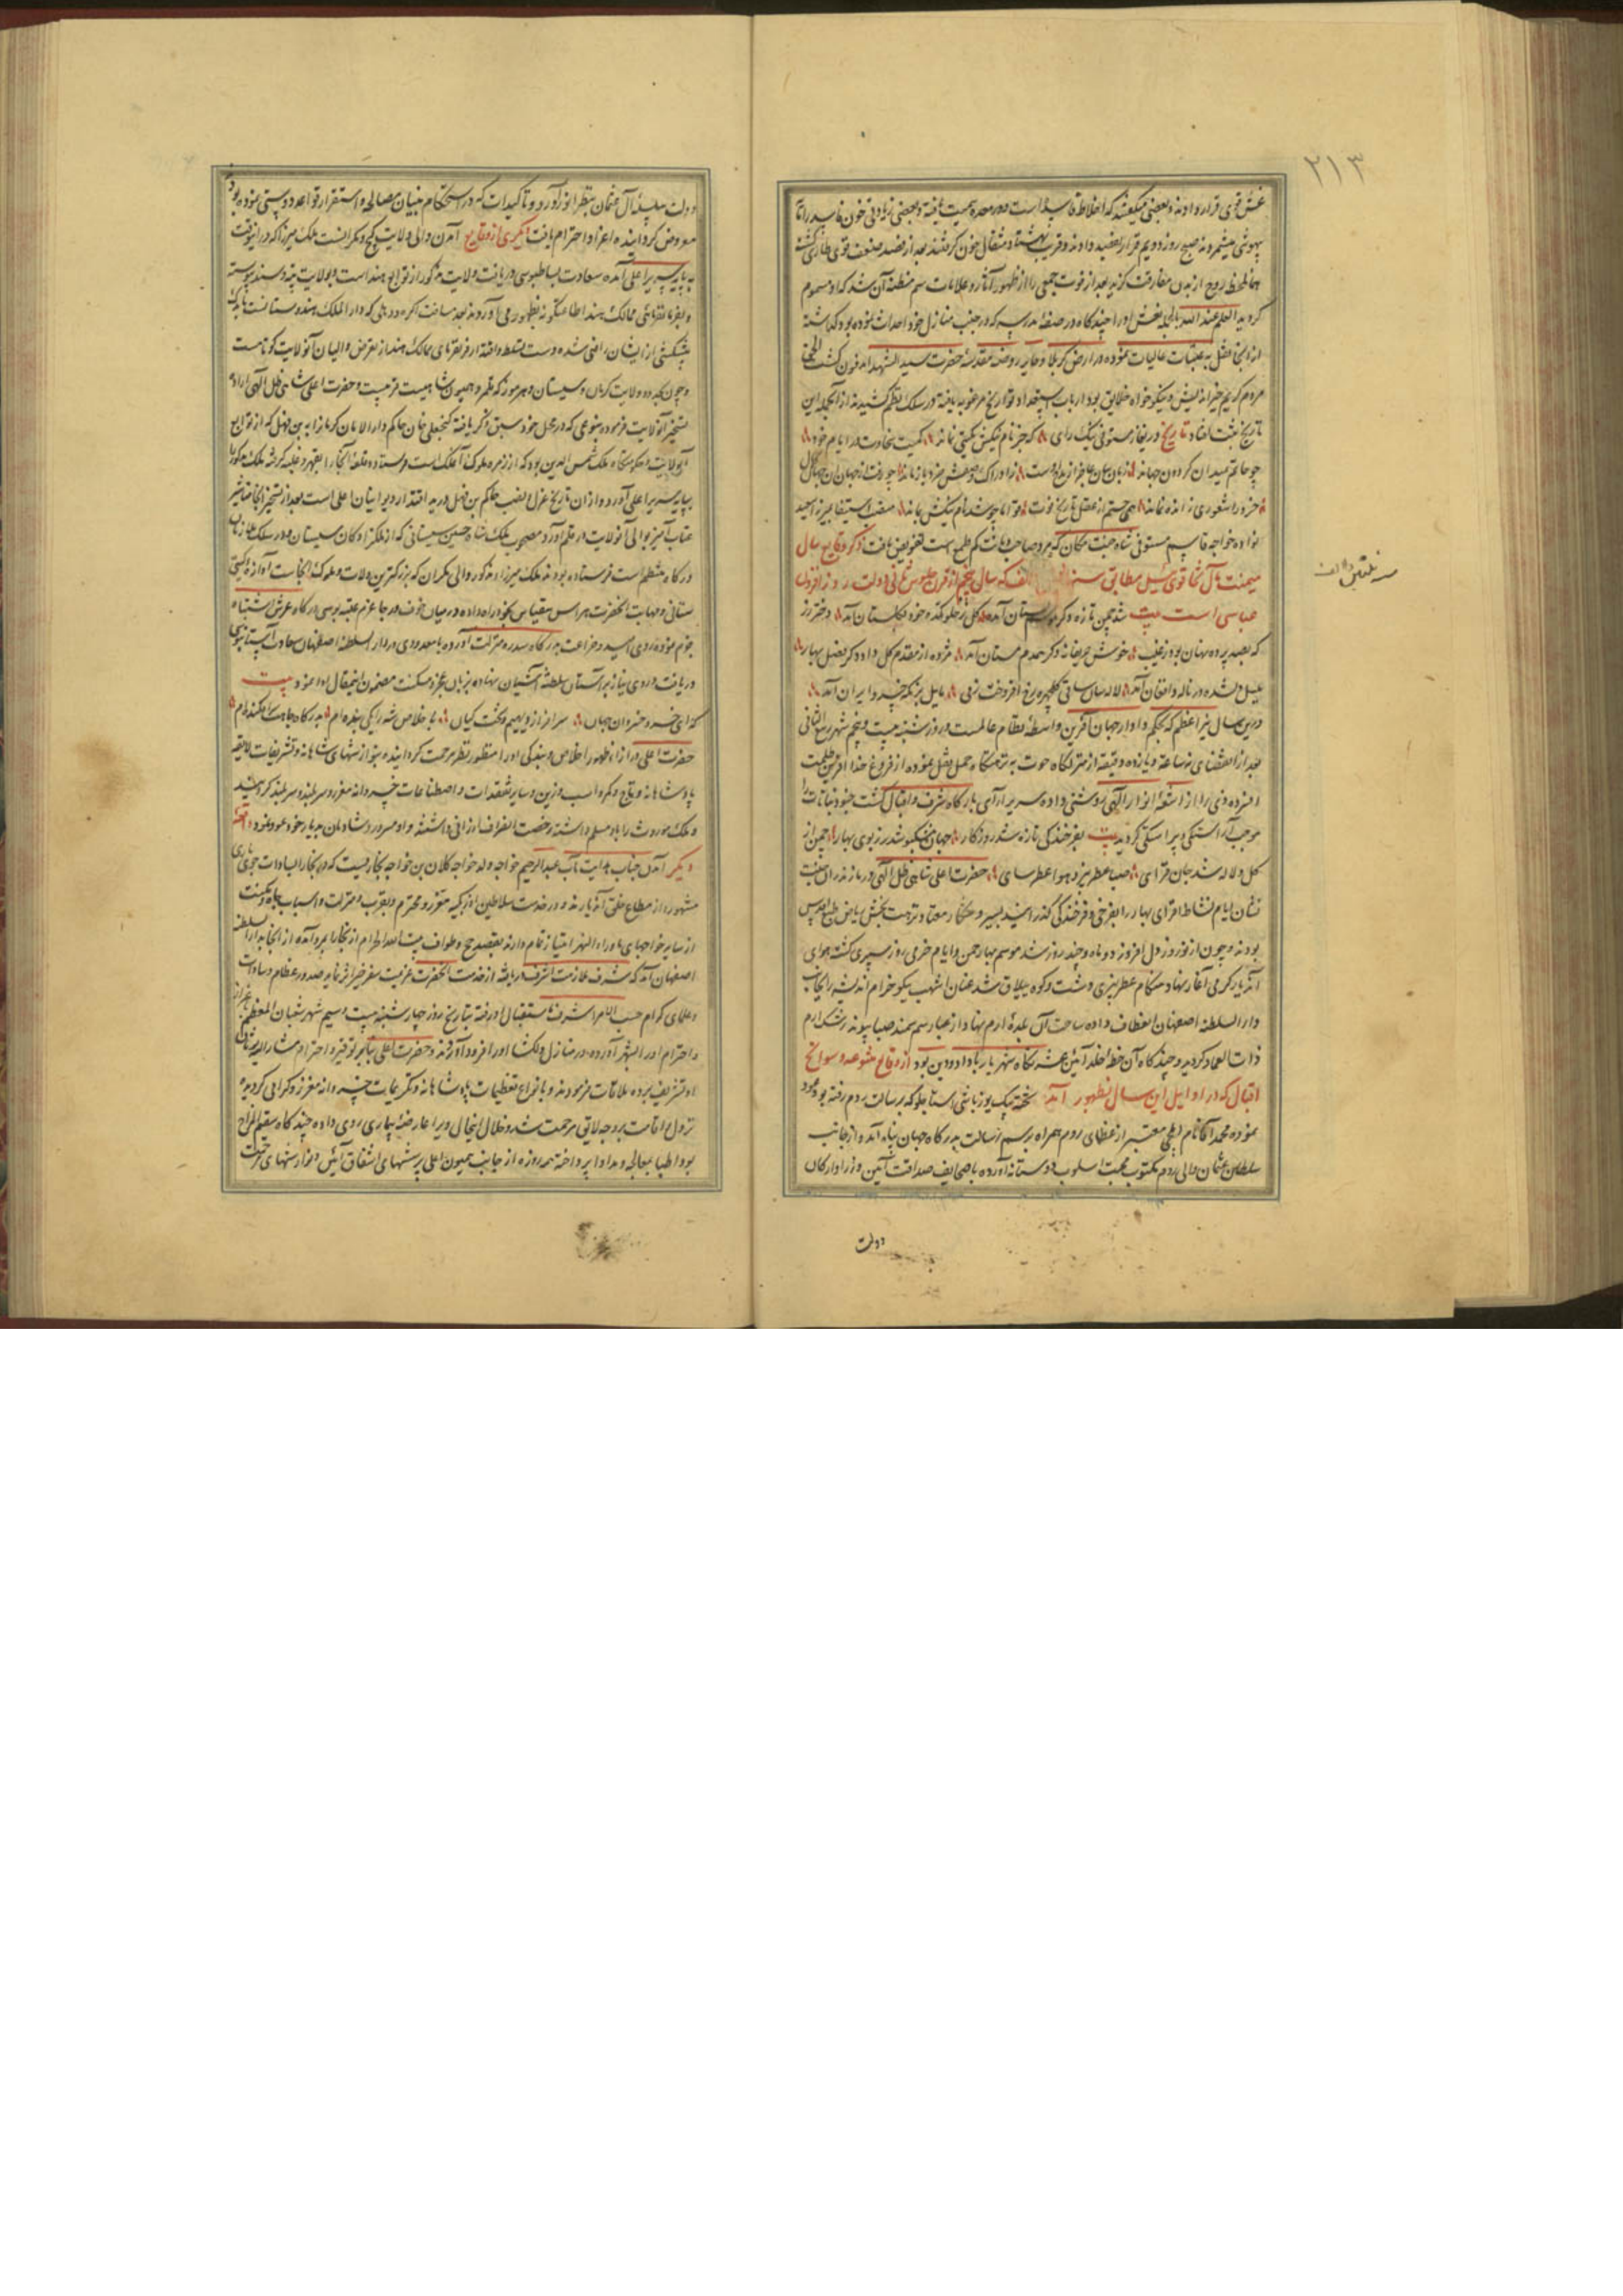 ۲۱۳
غش قوی قرار دادند و بعضی میگفتند که اخلاط فاسد است در معده بهمت یافته و بعضی زیادتی خون فاسد را
بیهوشی میشمردند صبح روز دویم قرار بفصد دادند و قریب بهشتاد مثقال خون گرفتند بعد از فصد ضعف قوی طاری گشته
همانلحظه روح از بدن مفارقت گزید بعد از فوت جمعی را از ظهور آثار و علامات سم مظنه آن شد که او مسموم
گردید العلم عند الله بالجمله نعش او را چندگاه در صفه مدرسه که در جنب منازل خود احداث نموده بود گذاشته
از آنجا نقل به عتبات عالیات نموده در ارض کربلا و حایر روضه مقدسه حضرت سید الشهدا مدفون گشت الحق
مردم کریم خیر اندیش و نیکو خواه خلایق بود ارباب استعداد تواریخ مرغوب یافته در سلک نظم کشیدند از آنجمله این
تاریخ مثبت افتاد تاریخ دریغا ز مستوفی نیک رای که جز نام نیکش بگیتی نماند
چو حاتم بمیدان گردون جهاند زبان بیان عاجز از مدح اوست
خرد را شعوری ز انده نماند همی جستم از عقل تاریخ فوت بماند منصب استیفا بمیرزا سعید
نواده خواجه قاسم مستوفی شاه جنت مکان که مرد صاحب دیانت کم طمع است تفویض یافت ذکر وقایع سال
میمنت مآل تنگوزی ئیل مطابق سنه الف که سال پنجم از قرن جلوس ثانی دولت روز افزون
عباسی است بیت شد چمن تازه دگر موسم بستان آمد گل ز جلوکنده خود بگلستان آمد دختر رز
که بصد پرده نهان بود ز غیب خوش حریفانه دگر همدم مستان آمد مژده از مقدم گل داد دگر فصل بهار
بلبل شده در ناله و افغان آمد لاله سان ساقی گلچهره برخ افروخت ز می مایل بزمگه خسرو ایران آمد
درین سال نیر اعظم که بحکم داور جهان آفرین واسطه نظام عالمست در روز شنبه بیست و پنجم شهر ربیع الثانی
بعد از انقضای نه ساعت و یازده دقیقه از منزلگاه حوت به نزهتگاه حمل نقل نموده از فروغ خدا آفرین ظلمت
افزوده دنی را از اشعه انوار الهی روشنی داده سریر آرای بارگاه شرف و اقبال گشت جنود نباتات را
موجب آراستگی و پیراستگی گردید بیت بفرخندگی تازه شد روزگار جهان مشکبو شد ز بوی بهار چمن از
گل و لاله شد جان فزای صبا عطر بیز و هوا عطر سای حضرت اعلی شاهی ظل الهی در مازندران جنت
نشان ایام نشاط افزای بهار را بفرخی و فرخندگی گذرانیده بسیر و شکار معتاد نزهت بخش ریاض طبع اقدس
بودند و چون از نوروز دل افروز دو ماه و چند روز شد موسم بهار چمن و ایام خرمی روز سپری گشت هوای
آندیار گرمی آغاز نهاد هنگام عطر بیزی دشت و کوه ییلاق شد عنان اشهب نیکو خرام اندیشه را بجانب
دار السلطنه اصفهان انعطاف داده ساحت آن بلده ارم نهاد از غبار سم سمند صبا پیوند رشک ارم
ذات العماد گردید و چندگاه آن خطه خلد آیین عشرتگاه شهریار با داد و دین بود از وقایع متنوعه و سوانح
اقبال که در اوایل این سال بظهور آمد تخته بیک یوزباشی استاجلو که برسالت روم رفته بود عود
نموده محمد آقا نام ایلچی معتبر از عظمای روم همراه برسم رسالت بدرگاه جهان پناه آمد و از جانب
سلطان عثمان والی روم مکتوب محبت اسلوب دوستانه آورده با صحایف صداقت آیین وزرا و ارکان
دولت
دولت سلسله آل عثمان بنظر انور آورد و تاکیدات که در استحکام بنیان مصالحه و استقرار قواعد دوستی نموده بود
معروض گردانیده اعزاز و احترام یافت دیگری از وقایع آمدن والی ولایت کیج و مکرانست ملک میرزا که در اینوقت
بپایه سریر اعلی آمده سعادت بساطبوسی دریافت ولایت مذکور از توابع هند است و بولایت تته و سند پیوسته
و بفرمانفرمای ممالک هند اطاعتگونه بظهور می آوردند بعد مسافت اگره و دهلی که دار الملک هندوستانست باندک
پیشکشی از ایشان راضی شده دست تسلط و اقتدار فرمانفرمای ممالک هند از تعرض والیان آنولایت کوتاهست
و چون بحدود ولایت کرمان و سیستان و هرموز که قلمرو همیون شاهیست قریبست و حضرت اعلی شاهی ظل الهی اراده
تسخیر آنولایت فرموده بنوعی که در محل خود سبق ذکر یافته گنجعلی خان حاکم دار الامان کرمانرا به بن فهل که از توابع
آنولایت و حکومتگاه ملک شمس الدین بود که از زمره ملوک آنملک است فرستاده قلعه آنجا را بقهر و غلبه گرفته ملک مذکور را
بپایه سریر اعلی آورد و از آن تاریخ عزل و نصب حاکم بن فهل در ید اقتدار دیوانیان اعلی است بعد از تسخیر آنجا مناشیر
عتاب آمیز بوالی آنولایت در قلم آورد مصحوب ملک شاه حسین سیستانی که از ملکزادگان سیستان و در سلک ملازمان
درگاه منتظم است فرستاده بودند ملک میرزا مذکور والی مکران که بزرگترین ولات و ملوک آنجاست آوازه گیتی
ستانی و مهابت آنحضرت هراس بیقیاس بخود راه داده در میان خوف و رجا عزم عتبه بوسی درگاه عرش اشتباه
جزم نموده روی امید و ضراعت بدرگاه سدره منزلت آورده با معدودی در دار السلطنه اصفهان سعادت آستانبوسی
دریافت و روی نیاز بر آستان سلطنت آشیان نهاده بزبان عجز و مسکنت مضمون اینمقال ادا نمود بیت
که ای خسرو خسروان جهان سرافراز دیهیم و تخت کیان با خلاص شه را یکی بنده ام بدرگاه جاهت سرافکنده ام
حضرت اعلی در ازاء ظهور اخلاص و بندگی او را منظور نظر مرحمت گردانیده بنوازشهای شاهانه و تشریفات لایقه
پادشاهانه و تاج و کمر و اسب و زین و سایر تفقدات و اصطناعات خسروانه معزز و سربلند گردانید
و ملک موروث را باو مسلم داشته رخصت انصراف ارزانی داشتند و او مسرور و شادمان بدیار خود عود نمود واقعه
دیگر آمدن جناب هدایت مآب عبدالرحیم خواجه ولد خواجه کلان بن خواجه بخاریست که در بخارا بسادات جویباری
مشهور و از مطاع خلق آندیارند و در خدمت سلاطین اوزبکیه معزز و محترم و بقرب و منزلت و اسباب جاه و مکنت
از سایر خواجهای ماوراء النهر امتیاز تمام دارند بقصد حج و طواف بیت الله الحرام از بخارا بمرو آمده از آنجا بدار السلطنه
اصفهان آمد که شرف ملازمت اشرف دریافته از خدمت آنحضرت عزیمت سفر خیر اثر نماید صدور عظام و سادات
و علمای کرام حسب الامر اشرف باستقبال او رفته بتاریخ روز چهارشنبه بیست و سیم شهر شعبان المعظم باعزاز
و احترام او را بشهر آورده در منازل دلگشا او را فرود آوردند و حضرت اعلی بنا بر توقیر و احترام مشار الیه بوثاق
او تشریف برده ملاقات فرمودند و بانواع تعظیمات پادشاهانه و تکریمات خسروانه معزز و گرامی گردیده
نزول اقامت بر وجه لایق مرحمت شد و خلال اینحال ویرا عارضه بیماری روی داده چندگاه سقیم المزاج
بود اطبا بمعالجه و مداوا پرداخته همه روزه از جانب همیون اعلی پرسشهای اشفاق آیین و نوازشهای